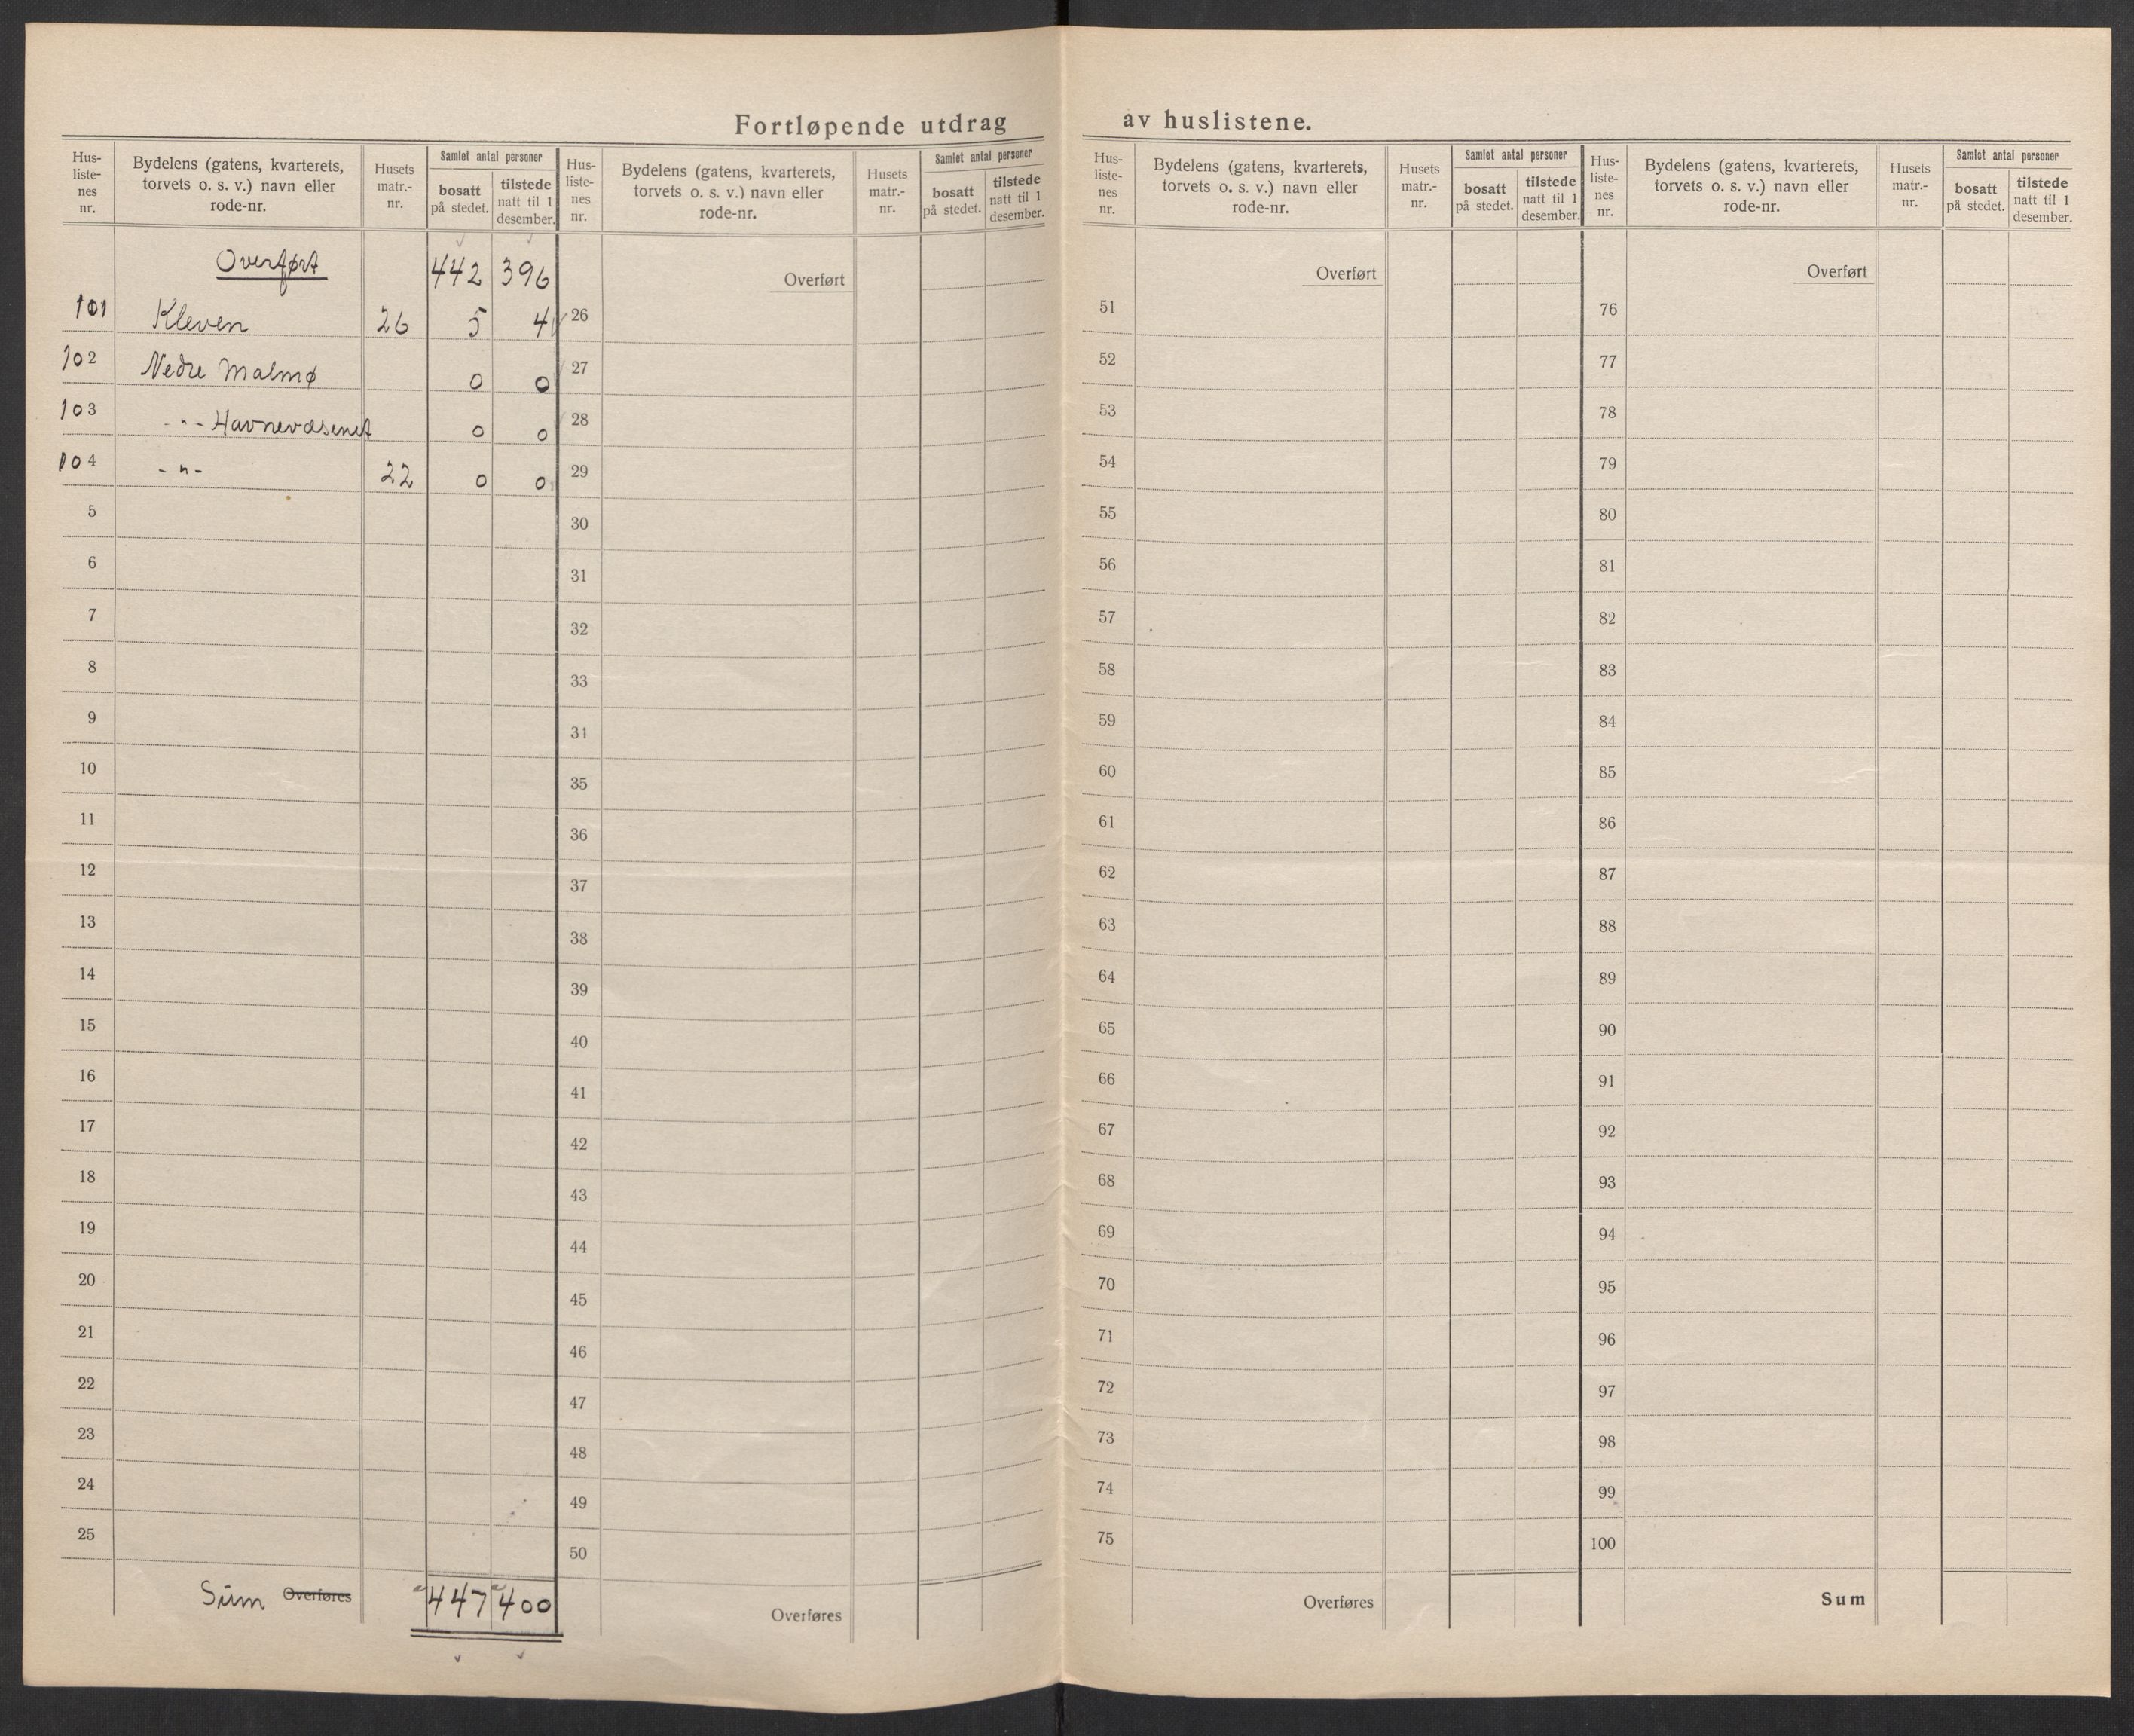 Fortløpende utdrag av huslistene.
Hus-
liste-
nes
nr.
Bydelens (gatens, kvarterets,
torvets o. s. v.) navn eller
rode-nr.
Husets
matr.-
nr.
Samlet antal personer
bosatt
på stedet.
tilstede
natt til 1
desember.
Overført 442 396
101 Kleven 26 5 4
102 Nedre Malmø 0 0
103 -"- Havnevæsenet 0 0
104 -"- 22 0 0
5
6
7
8
9
10
11
12
13
14
15
16
17
18
19
20
21
22
23
24
25
Sum Overføres 447 400
Hus-
liste-
nes
nr.
Bydelens (gatens, kvarterets,
torvets o. s. v.) navn eller
rode-nr.
Husets
matr.-
nr.
Samlet antal personer
bosatt
på stedet.
tilstede
natt til 1
desember.
Overført
26
27
28
29
30
31
32
33
31
35
36
37
38
39
40
41
42
43
44
45
46
47
48
49
50
Overføres
Hus-
liste-
nes
nr.
Bydelens (gatens, kvarterets,
torvets o. s. v.) navn eller
rode-nr.
Husets
matr.-
nr.
Samlet antal personer
bosatt
på stedet.
tilstede
natt til 1
desember.
Overført
51
52
53
54
55
56
57
58
59
60
61
62
63
64
65
66
67
68
69
70
71
72
73
74
75
Overføres
Hus-
liste-
nes
nr.
Bydelens (gatens, kvarterets,
torvets o. s. v.) navn eller
rode-nr.
Husets
matr.-
nr.
Samlet antal personer
bosatt
på stedet.
tilstede
natt til 1
desember.
Overført
76
77
78
79
80
81
82
83
84
85
86
87
88
89
90
91
92
93
94
95
96
97
98
99
100
Sum